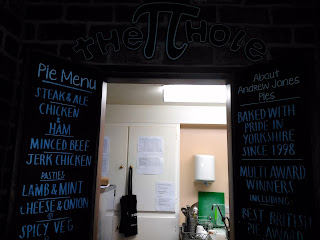 the π hole
Pie Menu
STEAK & ALE
CHICKEN
&
HAM
MINCED BEEF
JERK CHICKEN
PASTIES
LAMB & MINT
CHEESE & ONION
SPICY VEG
About
Andrew Jones
Pies
BAKED WITH
PRIDE IN
YORKSHIRE
SINCE 1998
MULTI AWARD
WINNERS
INCLUDING
BEST BRITISH
PIE AWARD